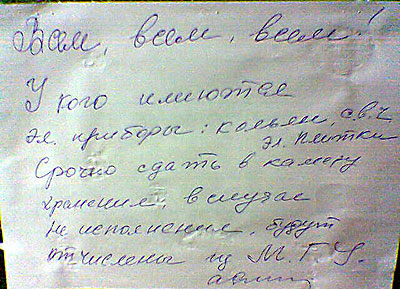 Всем, всем, всем!
У кого имеются
эл. приборы: кальян, с.в.ч
эл. плитки
Срочно сдать в камеру
хранения, в случае
не исполнения, будут
отчислены из М.Г.У.
админ